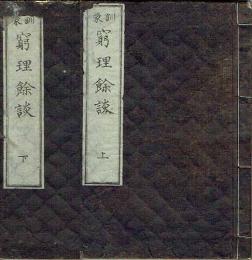 訓蒙
窮理餘談
上
訓蒙
窮理餘談
下